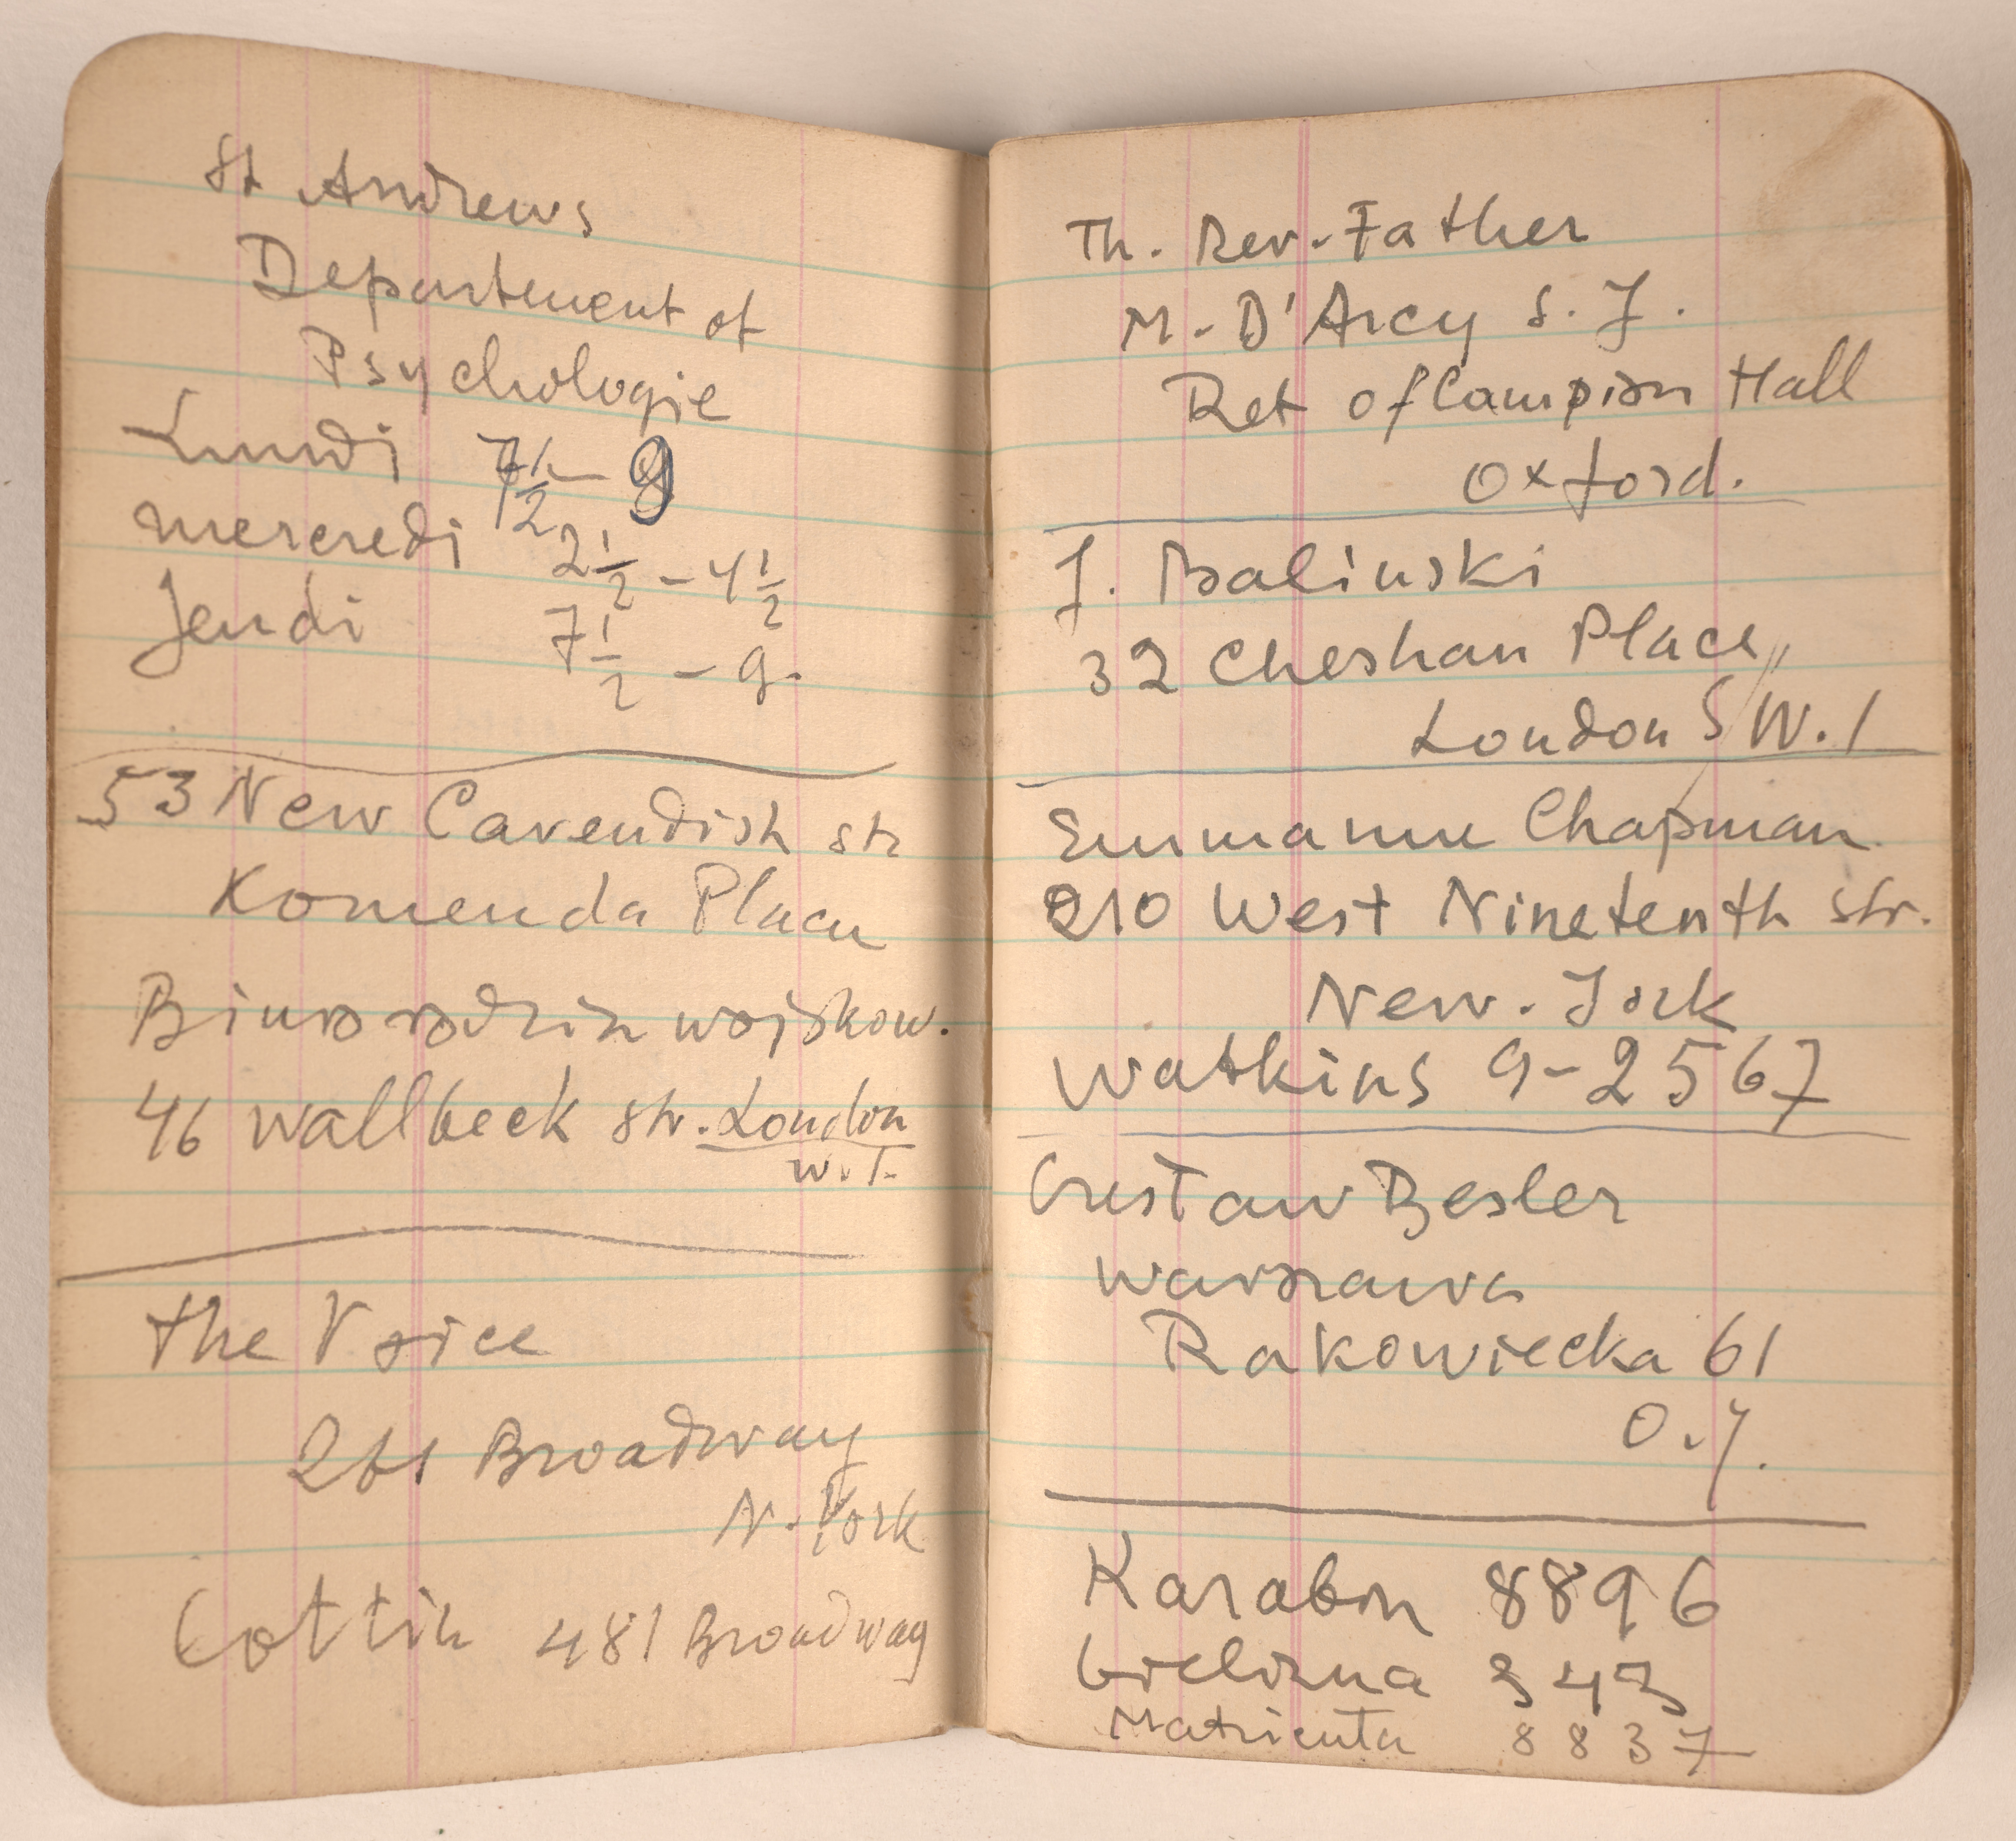 St Andrews
Departement of
Psychologie
Lundi 7½ - 9
mercredi 2½ - 4½
Jeudi 7½ - 9.
53 New Cavendish str
Komenda Placu
Biuro rodzin wojskow.
46 Wallbeck str. London
W.1.
The Voice
261 Broadway
N. York
Cottin 481 Broadway
Th. Rev. Father
M. D'Arcy S. J.
Ret of Campion Hall
Oxford.
J. Balinski
32 Cheshan Place
London S W. 1
Emmanu Chapman
210 West Ninetenth str.
New. Jork
Watkins 9-2567
Gustaw Besler
Warszawa
Rakowiecka 61
Karabin 8896
bielizna 343
8837